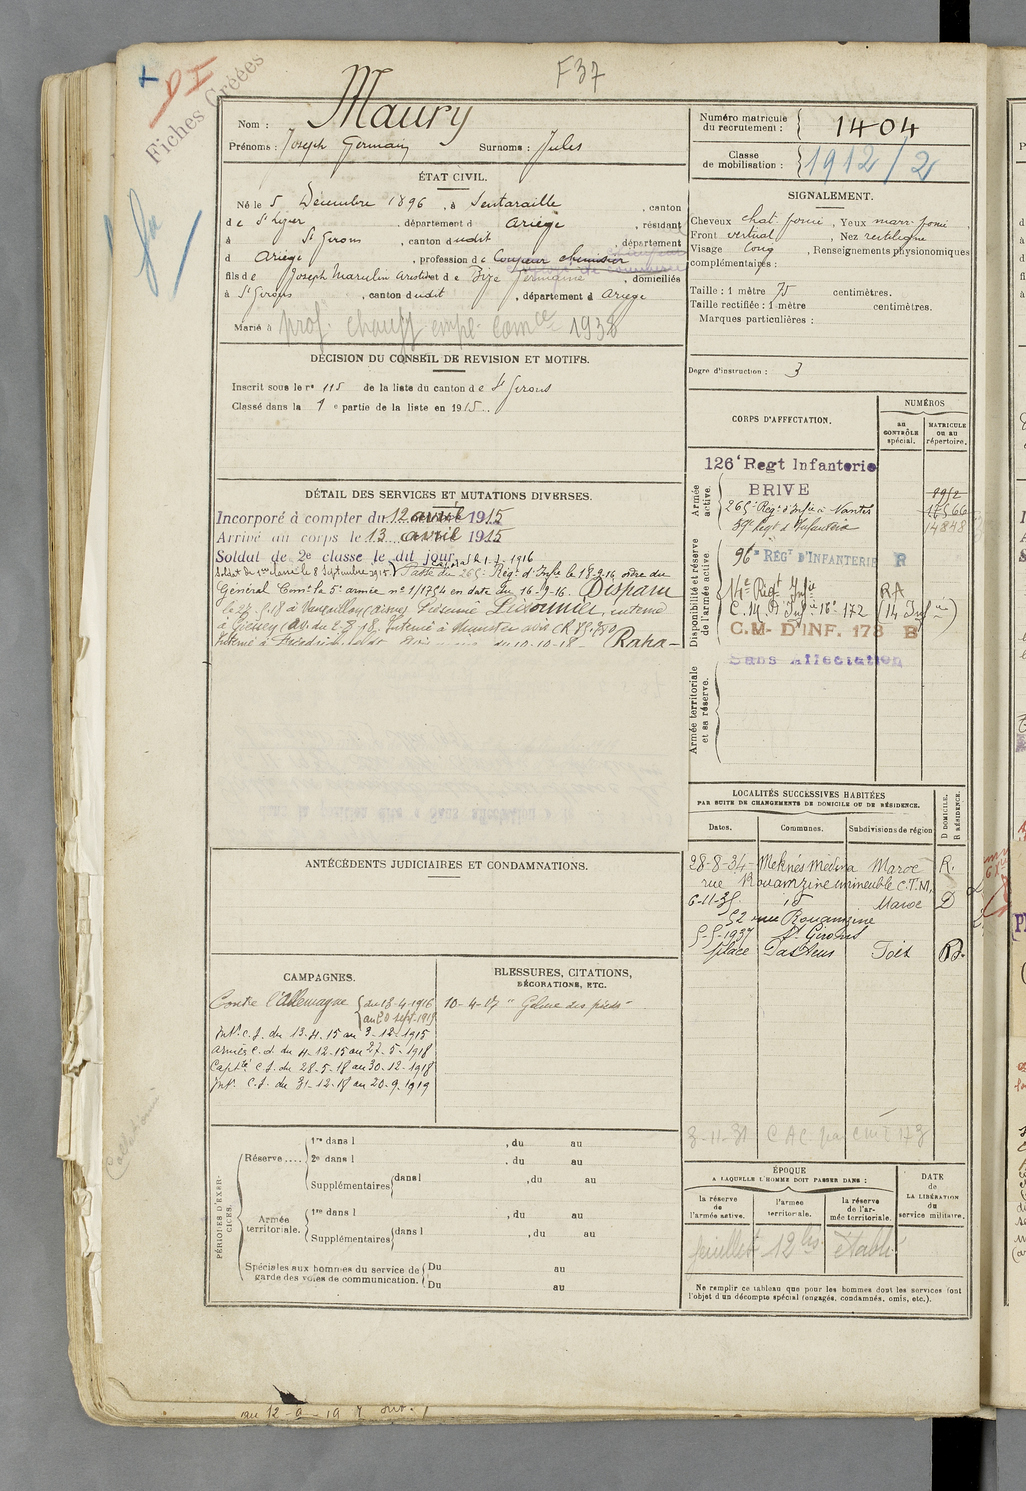 F37
+
DI
Fiches Créées
Nom : Maury
Prénoms : Joseph Germain Surnoms : Jules
Numéro matricule du recrutement : 1404
Classe de mobilisation : 1912/2
ÉTAT CIVIL.
Né le 5 Décembre 1896, à Sentaraille, canton
de St Lizier, département d Ariège, résidant
à St Girons, canton dudit, département
d Ariège, profession de Coupeur chemisier
fils de Joseph Marcelin Aristide et de Bize Germaine, domiciliés
à St Girons, canton dudit, département d Ariège
Marié à
prof. chauff empl. Comce 1938
SIGNALEMENT.
Cheveux chat. foncé, Yeux marr. foncé,
Front vertical, Nez rectiligne
Visage long, Renseignements physionomiques
complémentaires :
Taille : 1 mètre 75 centimètres.
Taille rectifiée : 1 mètre centimètres.
Marques particulières :
Degré d'instruction : 3
DÉCISION DU CONSEIL DE REVISION ET MOTIFS.
Inscrit sous le no 115 de la liste du canton de St Girons
Classé dans la 1 e partie de la liste en 1915.
DÉTAIL DES SERVICES ET MUTATIONS DIVERSES.
Incorporé à compter du 12 avril 1915
Arrivé au corps le 13 avril 1915
Soldat de 2e classe le dit jour
Soldat de 1ere classe le 8 Septembre 1915 Passé au 265e Régt d'Infie le 18-9-16 ordre du
Général Comt la 5e armée no 1/1754 en date du 16-9-16. Disparu
le 27-5-18 à Vauxaillon (Aisne) Présumé Prisonnier, interné
à Giessen (av. du 2-8-18. Interné à Munster avis CR
Interné à du 10-10-18 - Rapa-
CORPS D'AFFECTATION.
NUMÉROS
au CONTRÔLE spécial.
MATRICULE ou au répertoire.
Armée active.
126e Regt Infanterie
BRIVE
8952
265e Regt d'Infie à Nantes 17566
59e Regt d'Infanterie 14848
Disponibilité et réserve de l'armée active
96e RÉGt D'INFANTERIE R
14e Regt Infie RA
C. M. D'Infie 16e 172 (14 Infie)
C. M. D'INF. 178 B
Armée territoriale et sa réserve.
Sans Affectation
LOCALITÉS SUCCESSIVES HABITÉES
PAR SUITE DE CHANGEMENTS DE DOMICILE OU DE RÉSIDENCE.
Dates. Communes. Subdivisions de région D DOMICILE. R RÉSIDENCE.
28-8-34 Meknès Médina Maroc R.
rue Rouamzine immeuble C.T.M.
6-11-35 id Maroc D
52 rue Rouamzine
5-5-1937 St Girons
place Pasteur Foix
3-11-31 CAC par CMI 173
ANTÉCÉDENTS JUDICIAIRES ET CONDAMNATIONS.
CAMPAGNES.
Contre l'Allemagne du 13-4-1915
au 20 sept. 1919
Intr. C.S. du 13.4.15 au 3-12-1915
Armées C.d. du 4-12.15 au 27-5-1918
Capté C.S. du 28-5-18 au 30-12-1918
Intr. C.S. du 31-12-18 au 20-9-1919
BLESSURES, CITATIONS,
DÉCORATIONS, ETC.
10-4-17 "Gelure des pieds"
PÉRIODES D'EXERCICES.
Réserve....
1re dans l , du au
2e dans l , du au
Supplémentaires dans l , du au
Armée territoriale.
1re dans l , du au
Supplémentaires dans l , du au
Spéciales aux hommes du service de garde des voies de communication.
Du au
Du au
ÉPOQUE
A LAQUELLE L'HOMME DOIT PASSER DANS :
la réserve de l'armée active.
l'armée territoriale.
la réserve de l'armée territoriale.
DATE de LA LIBÉRATION du service militaire.
feuillet 12 bis établi
Ne remplir ce tableau que pour les hommes dont les services font
l'objet d'un décompte spécial (engagés, condamnés, omis, etc.).